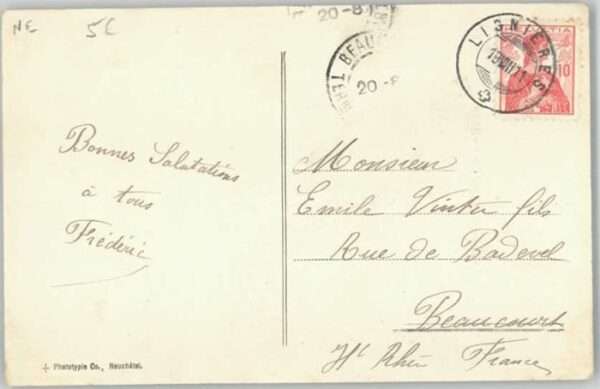 NE
5C
20-8
BEAU
20-8
LIGNIÈRES
19 VIII 11
10
Bonnes Salutations
à tous
Frédéric
Monsieur
Emile Vinter fils
Rue de Badevel
Beaucourt
Ht Rhin France
Phototypie Co., Neuchâtel.